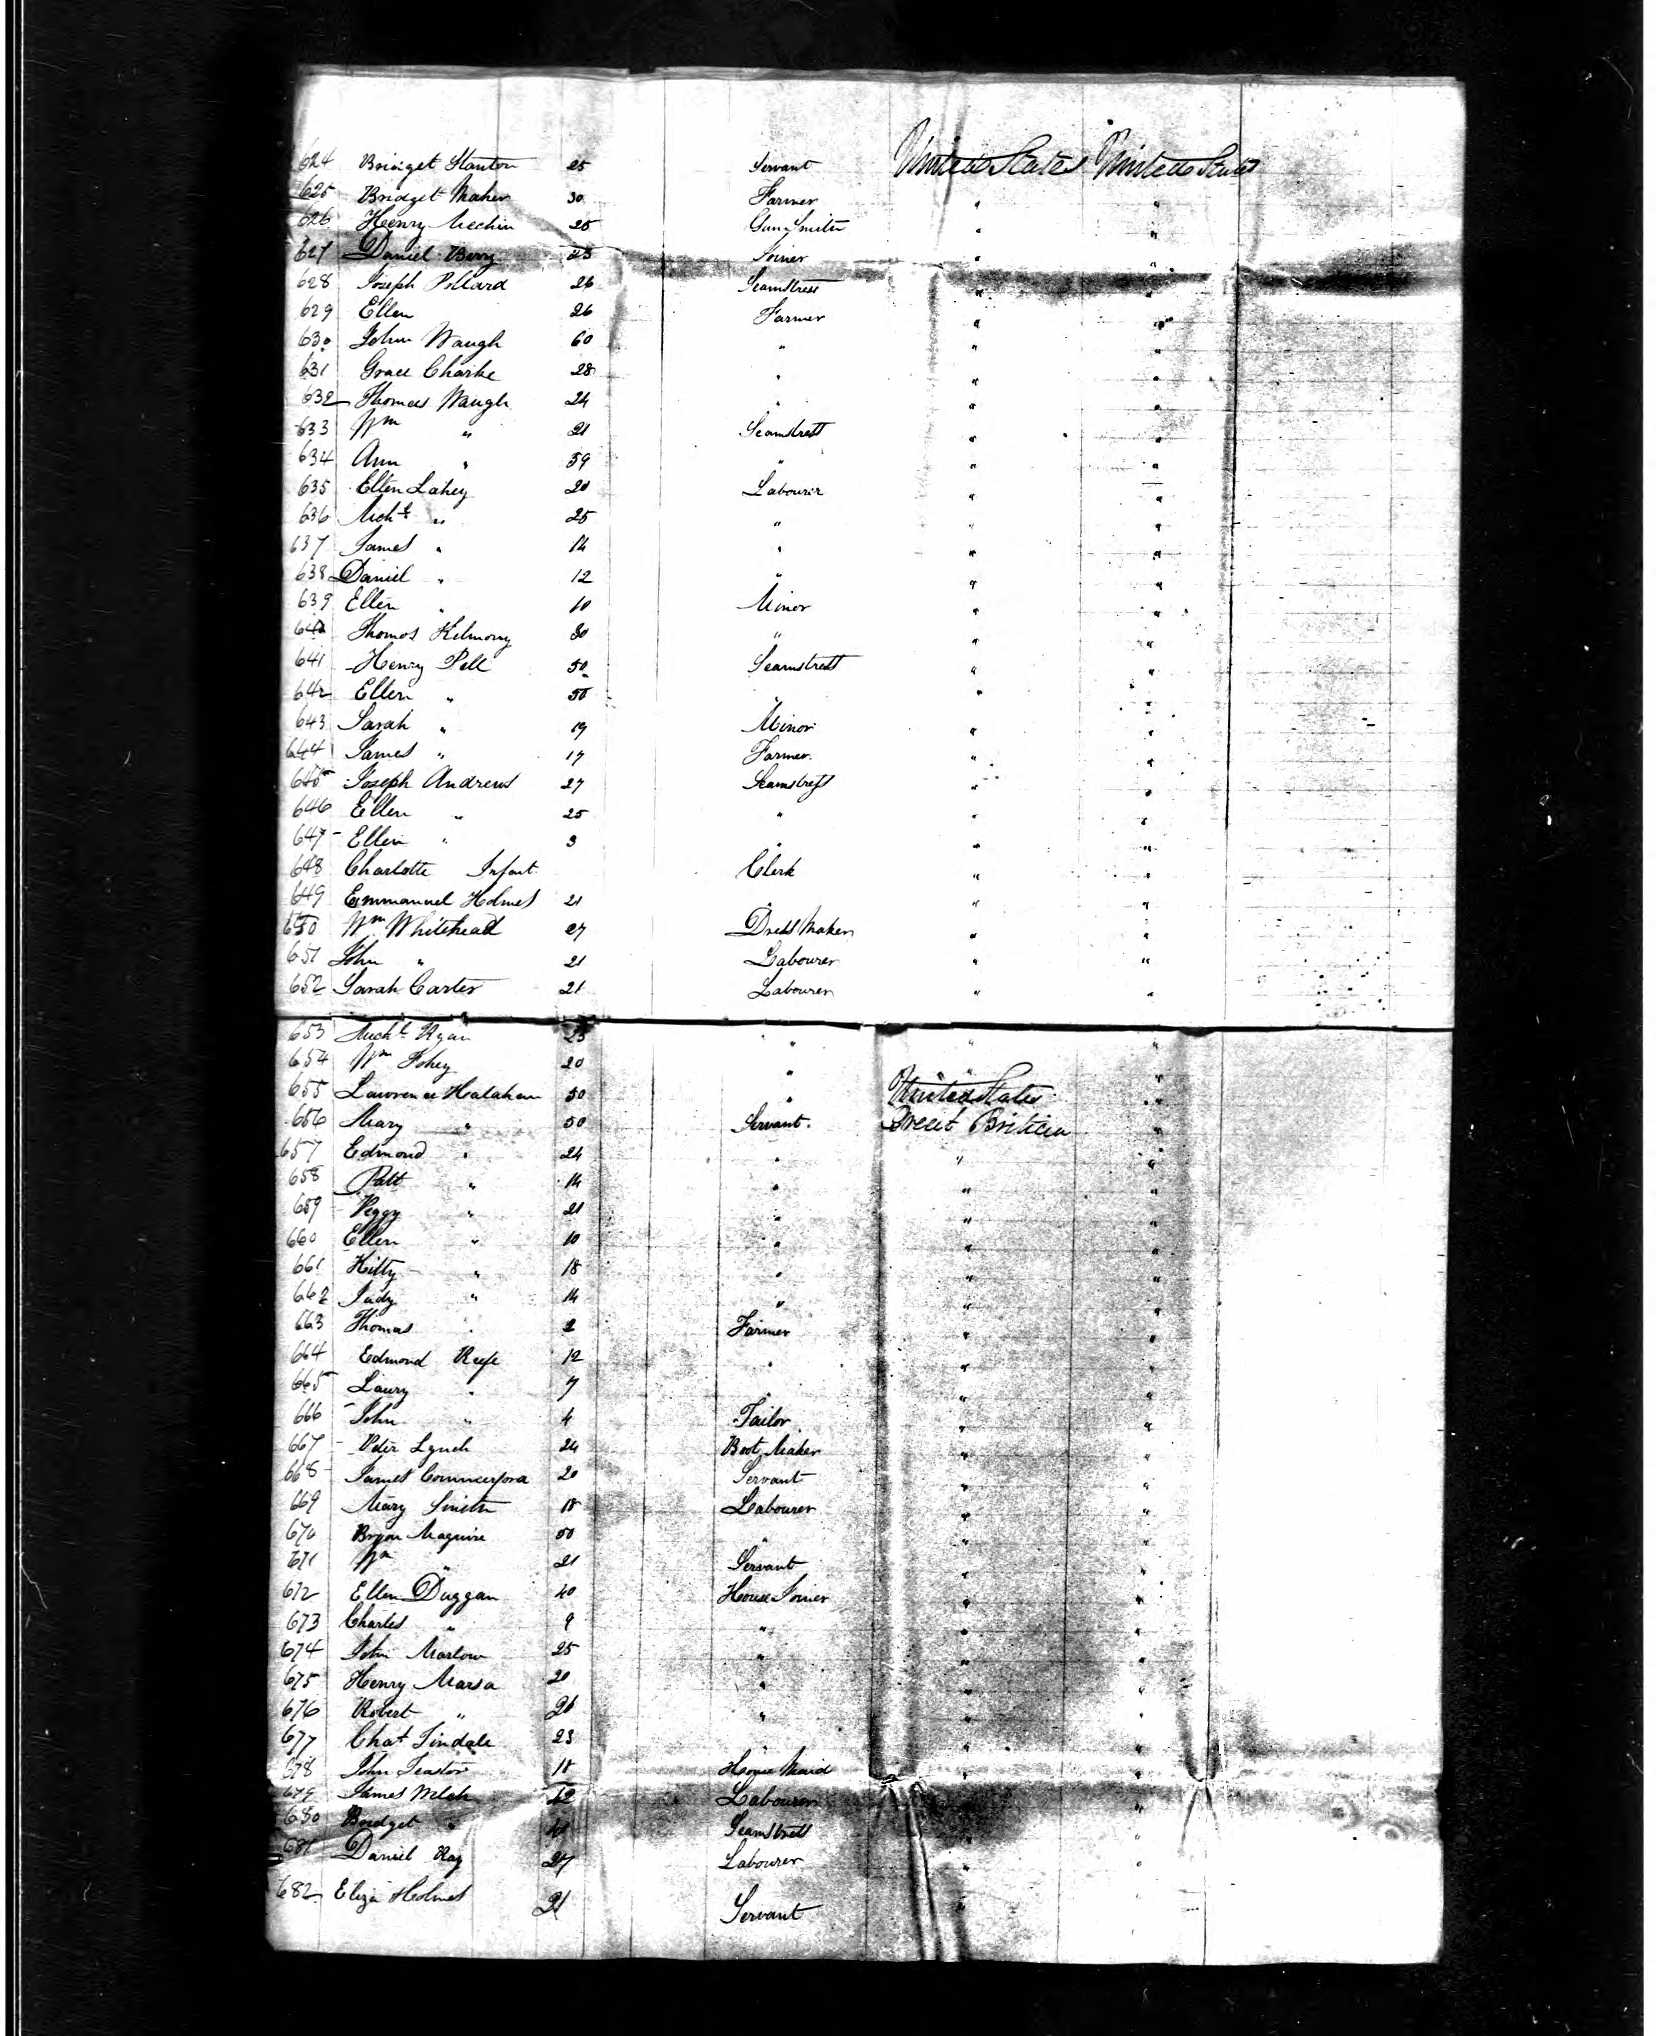 624 Bridget Stanton 25 Servant United States United States
625 Bridget Maher 30 Farmer " "
626 Henry Mechin 25 Gun Smith " "
627 Daniel Berry 23 Joiner " "
628 Joseph Pollard 26 Seamstress " "
629 Ellen 26 Farmer " "
630 John Waugh 60 " " "
631 Grace Charke 28 " " "
632 Thomas Waugh 24 " " "
633 Wm " 21 Seamstress " "
634 Ann " 59 " " "
635 Ellen Lahey 20 Labourer " "
636 Michl " 25 " " "
637 James " 14 " " "
638 Daniel " 12 " " "
639 Ellen " 10 Minor " "
640 Thomas Kilmony 30 " " "
641 Henry Pell 50 Seamstress " "
642 Ellen " 50 " " "
643 Sarah " 19 Minor " "
644 James " 17 Farmer " "
645 Joseph Andrews 27 Seamstress " "
646 Ellen " 25 " " "
647 Ellen " 3 " " "
648 Charlotte Infant Clerk " "
649 Emmanuel Holmes 21 " " "
650 Wm Whitehead 27 Dress Maker " "
651 John " 21 Labourer " "
652 Sarah Carter 21 Labourer " "
653 Michl Ryan 23 " " "
654 Wm Fohey 20 " " "
655 Lawrence Halahan 50 " United States "
656 Mary " 50 Servant Great Britain "
657 Edmond " 24 " " "
658 Patt " 14 " " "
659 Peggy " 21 " " "
660 Ellen " 10 " " "
661 Kitty " 18 " " "
662 Judy " 14 " " "
663 Thomas " 2 Farmer " "
664 Edmond Keefe 12 " " "
665 Laury " 7 " " "
666 John " 4 Tailor " "
667 Peter Lynch 24 Boot Maker " "
668 James Commerford 20 Servant " "
669 Mary Smith 18 Labourer " "
670 Bryan Maguire 50 " " "
671 Wm " 21 Servant " "
672 Ellen Duggan 40 House Joiner " "
673 Charles " 9 " " "
674 John Marlow 25 " " "
675 Henry Marsa 20 " " "
676 Robert " 26 " " "
677 Chas Tindale 23 " " "
678 John Teastor 18 House Maid " "
679 James Welch 42 Labourer " "
680 Bridget " Seamstress " "
681 Daniel Ray 27 Labourer " "
682 Eliza Holmes 21 Servant "